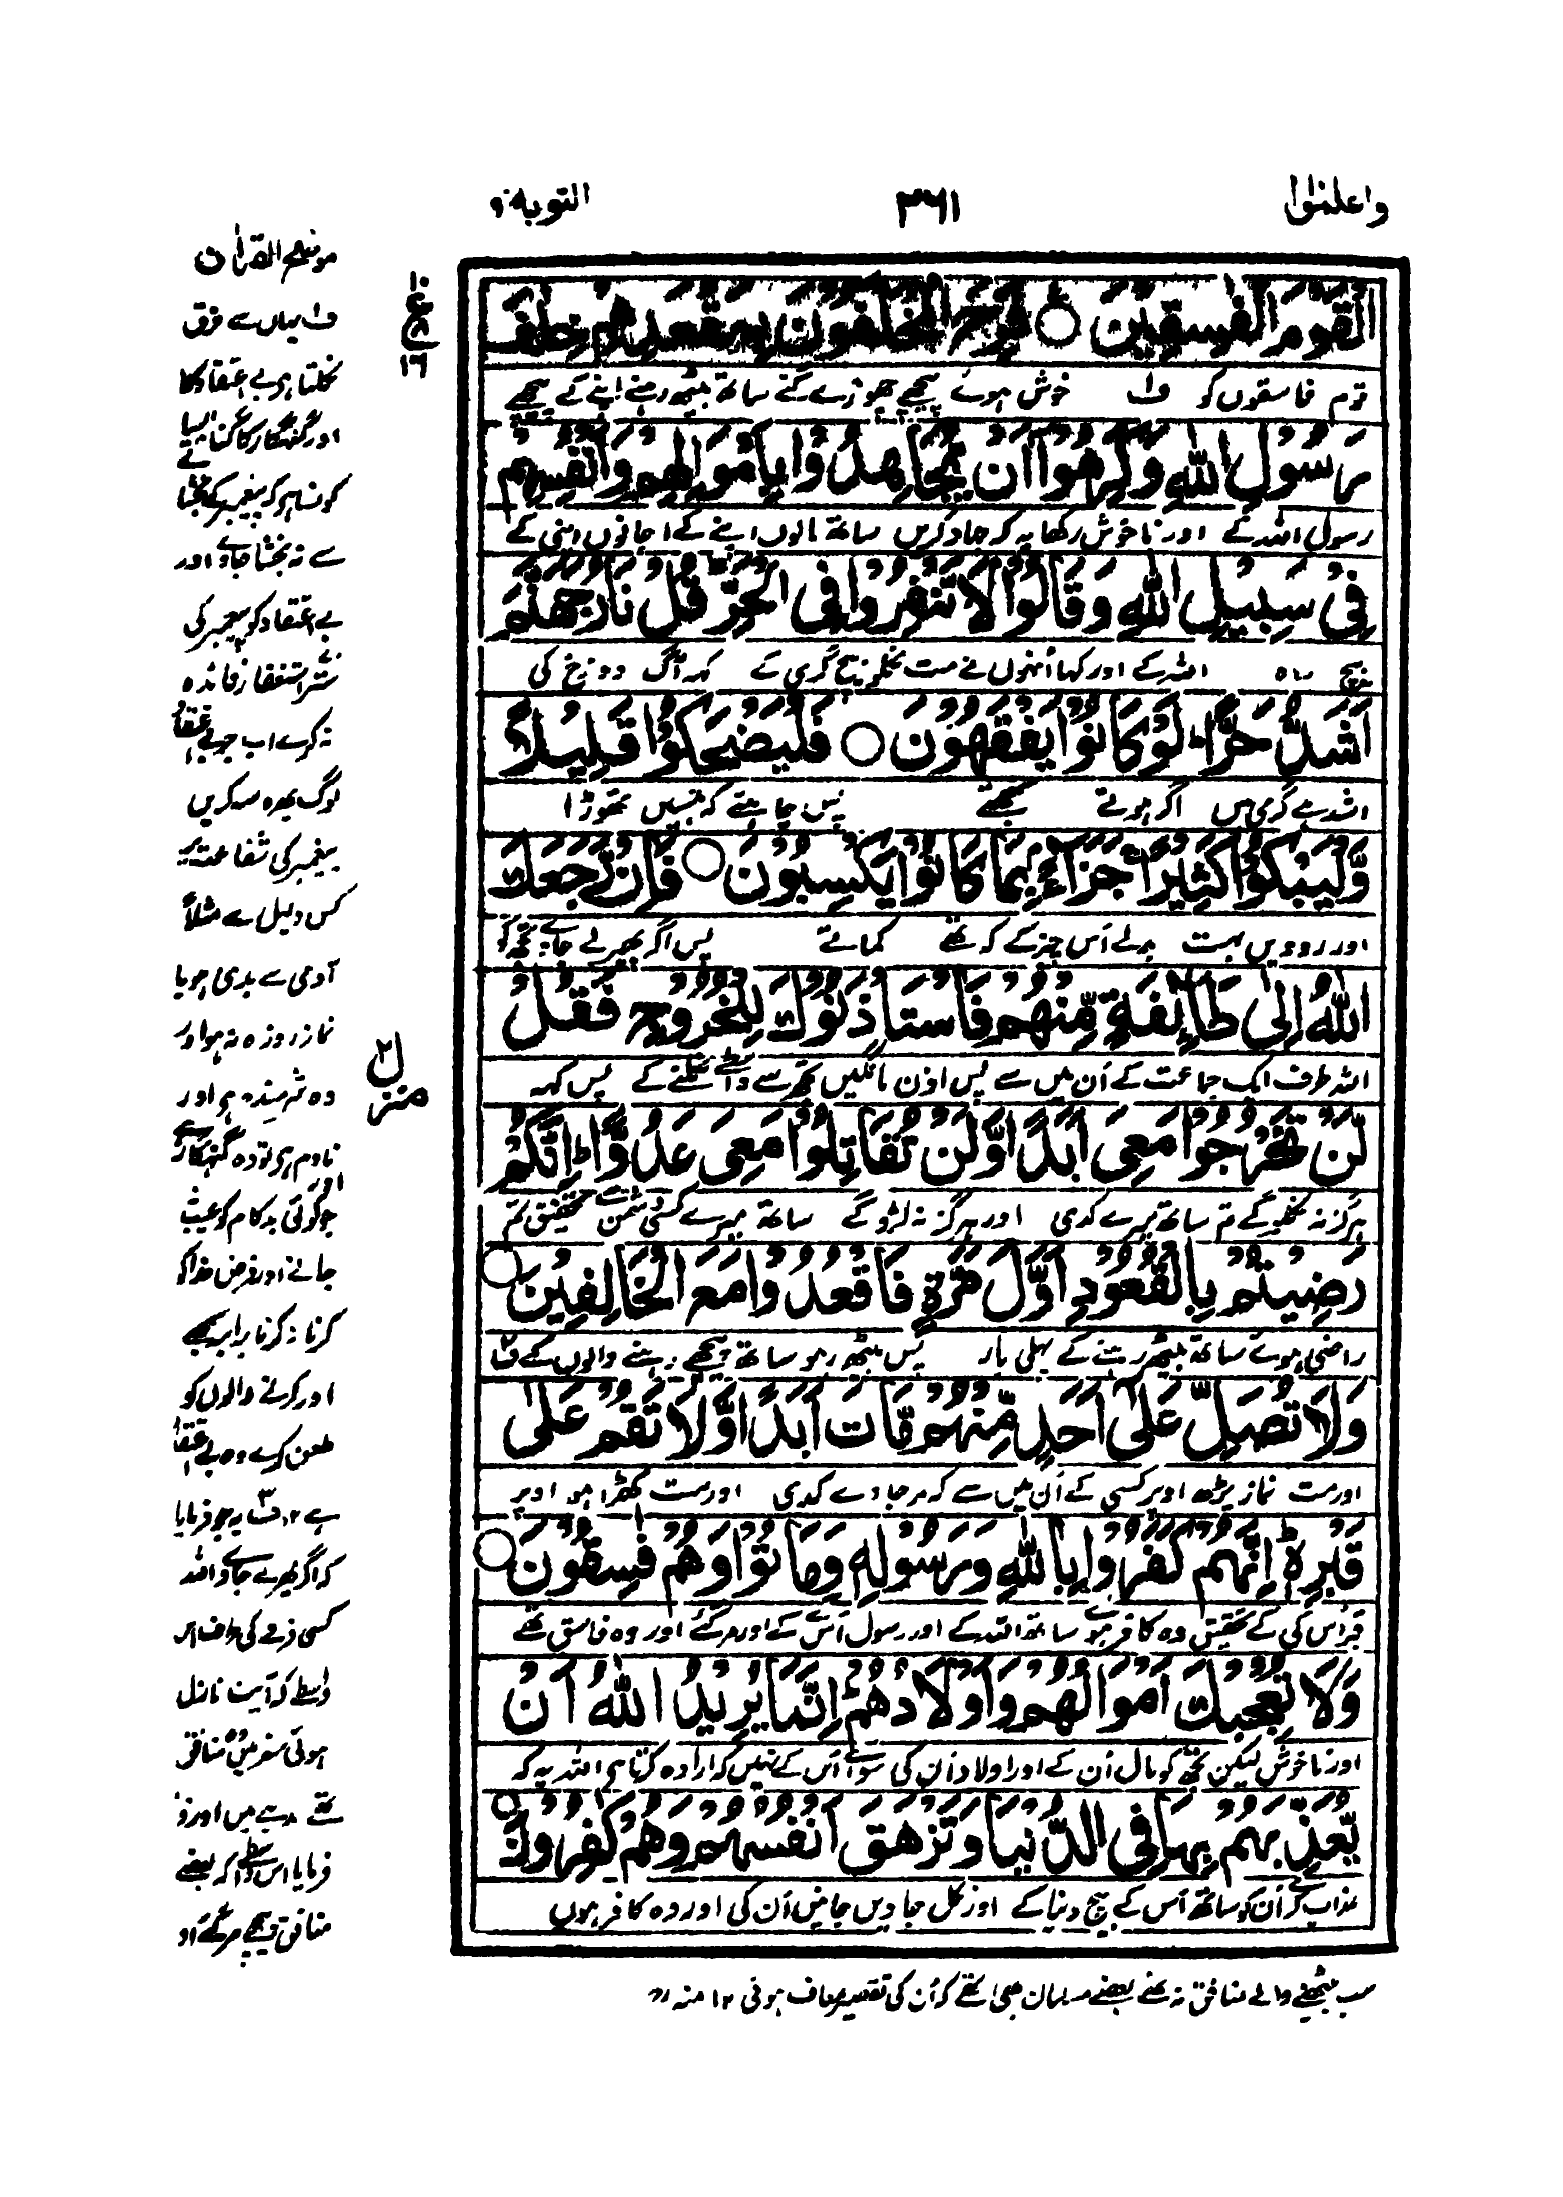 واعلموا
۳۶۱
التوبة ۹
الْقَوْمَ الْفٰسِقِیْنَ ○ فَرِحَ الْمُخَلَّفُوْنَ بِمَقْعَدِهِمْ خِلٰفَ
قوم فاسقوں کو ف۱ خوش ہوئے پیچھے چھوڑے گئے ساتھ بیٹھ رہنے اپنے کے پیچھے
رَسُوْلِ اللّٰهِ وَكَرِهُوْۤا اَنْ یُّجَاهِدُوْا بِاَمْوَالِهِمْ وَاَنْفُسِهِمْ
رسول اللہ کے اور ناخوش رکھا یہ کہ جہاد کریں ساتھ مالوں اپنے کے اور جانوں اپنی کے
فِیْ سَبِیْلِ اللّٰهِ وَقَالُوْا لَا تَنْفِرُوْا فِی الْحَرِّ قُلْ نَارُ جَهَنَّمَ
بیچ راہ اللہ کے اور کہا اُنہوں نے مت نکلو بیچ گرمی کے کہہ آگ دوزخ کی
اَشَدُّ حَرًّا ؕ لَوْ كَانُوْا یَفْقَهُوْنَ ○ فَلْیَضْحَكُوْا قَلِیْلًا
اشد ہے گرمی میں اگر ہوتے سمجھتے پس چاہئے کہ ہنسیں تھوڑا
وَّلْیَبْكُوْا كَثِیْرًا ۚ جَزَآءًۢ بِمَا كَانُوْا یَكْسِبُوْنَ ○ فَاِنْ رَّجَعَكَ
اور روویں بہت بدلے اُس چیز کے کہ تھے کماتے پس اگر پھیر لے جائے تجھ کو
اللّٰهُ اِلٰى طَآئِفَةٍ مِّنْهُمْ فَاسْتَاْذَنُوْكَ لِلْخُرُوْجِ فَقُلْ
اللہ طرف ایک جماعت کے اُن میں سے پس اذن مانگیں تجھ سے واسطے نکلنے کے پس کہہ
لَّنْ تَخْرُجُوْا مَعِیَ اَبَدًا وَّلَنْ تُقَاتِلُوْا مَعِیَ عَدُوًّا ؕ اِنَّكُمْ
ہرگز نہ نکلو گے تم ساتھ میرے کدی اور ہرگز نہ لڑو گے ساتھ میرے کسی دشمن سے تحقیق تم
رَضِیْتُمْ بِالْقُعُوْدِ اَوَّلَ مَرَّةٍ فَاقْعُدُوْا مَعَ الْخَالِفِیْنَ ○
راضی ہوئے ساتھ بیٹھ رہنے کے پہلی بار پس بیٹھ رہو ساتھ پیچھے رہنے والوں کے ف۲
وَلَا تُصَلِّ عَلٰۤى اَحَدٍ مِّنْهُمْ مَّاتَ اَبَدًا وَّلَا تَقُمْ عَلٰى
اور مت نماز پڑھ اوپر کسی کے اُن میں سے کہ مر جاوے کدی اور مت کھڑا ہو اوپر
قَبْرِهٖ ؕ اِنَّهُمْ كَفَرُوْا بِاللّٰهِ وَرَسُوْلِهٖ وَمَاتُوْا وَهُمْ فٰسِقُوْنَ ○
قبر اُس کی کے تحقیق وہ کافر ہوئے ساتھ اللہ کے اور رسول اُس کے اور مر گئے اور وہ فاسق تھے
وَلَا تُعْجِبْكَ اَمْوَالُهُمْ وَاَوْلَادُهُمْ ؕ اِنَّمَا یُرِیْدُ اللّٰهُ اَنْ
اور ناخوش لیکن تجھ کو مال اُن کے اور اولاد اُن کی سوائے اُس کے نہیں کہ ارادہ کرتا ہے اللہ یہ کہ
یُّعَذِّبَهُمْ بِهَا فِی الدُّنْیَا وَتَزْهَقَ اَنْفُسُهُمْ وَهُمْ كٰفِرُوْنَ ○
عذاب کرے اُن کو ساتھ اُس کے بیچ دنیا کے اور نکل جاویں جانیں اُن کی اور وہ کافر ہوں
۱۰
ع
۱۶
منزل ۲
موضح القرآن
ف۱ یہاں سے فرق
نکلتا ہے بے اعتقاد کا
اور گنہگار کا گناہ ایسا
کونسا ہے کہ پیغمبر کے بخشا
ئے سے نہ بخشا جاوے اور
بے اعتقاد کو پیغمبر کی
ستر استغفار فائدہ
نہ کرے اب جو بے اعتقاد
لوگ بھروسہ کریں
پیغمبر کی شفاعت پر
کس دلیل سے مثلاً
آدمی سے بدی ہو یا
نماز روزہ نہ ہو اور
وہ شرمندہ ہے اور
نادم ہے تو وہ گنہگار ہے اور
جو کوئی بد کام کو عیب نہ
جانے اور فرض خدا کو
کرنا نہ کرنا برابر سمجھے
اور کرنے والوں کو
طعن کرے وہ بے اعتقاد
ہے ۱۲ ف۲ یہ جو فرمایا
کہ اگر پھیر لے جاوے اللہ
کسی فرقے کی طرف اس
واسطے کہ آیت نازل
ہوئی سفر میں منافق
تھے مدینے میں اور فر
فرمایا اس واسطے کہ بعضے
منافق پیچھے مر گئے اور
سب بیٹھنے والے منافق نہ تھے بعضے مسلمان بھی تھے کہ اُن کی تقصیر معاف ہوئی ۱۲ منہ رح